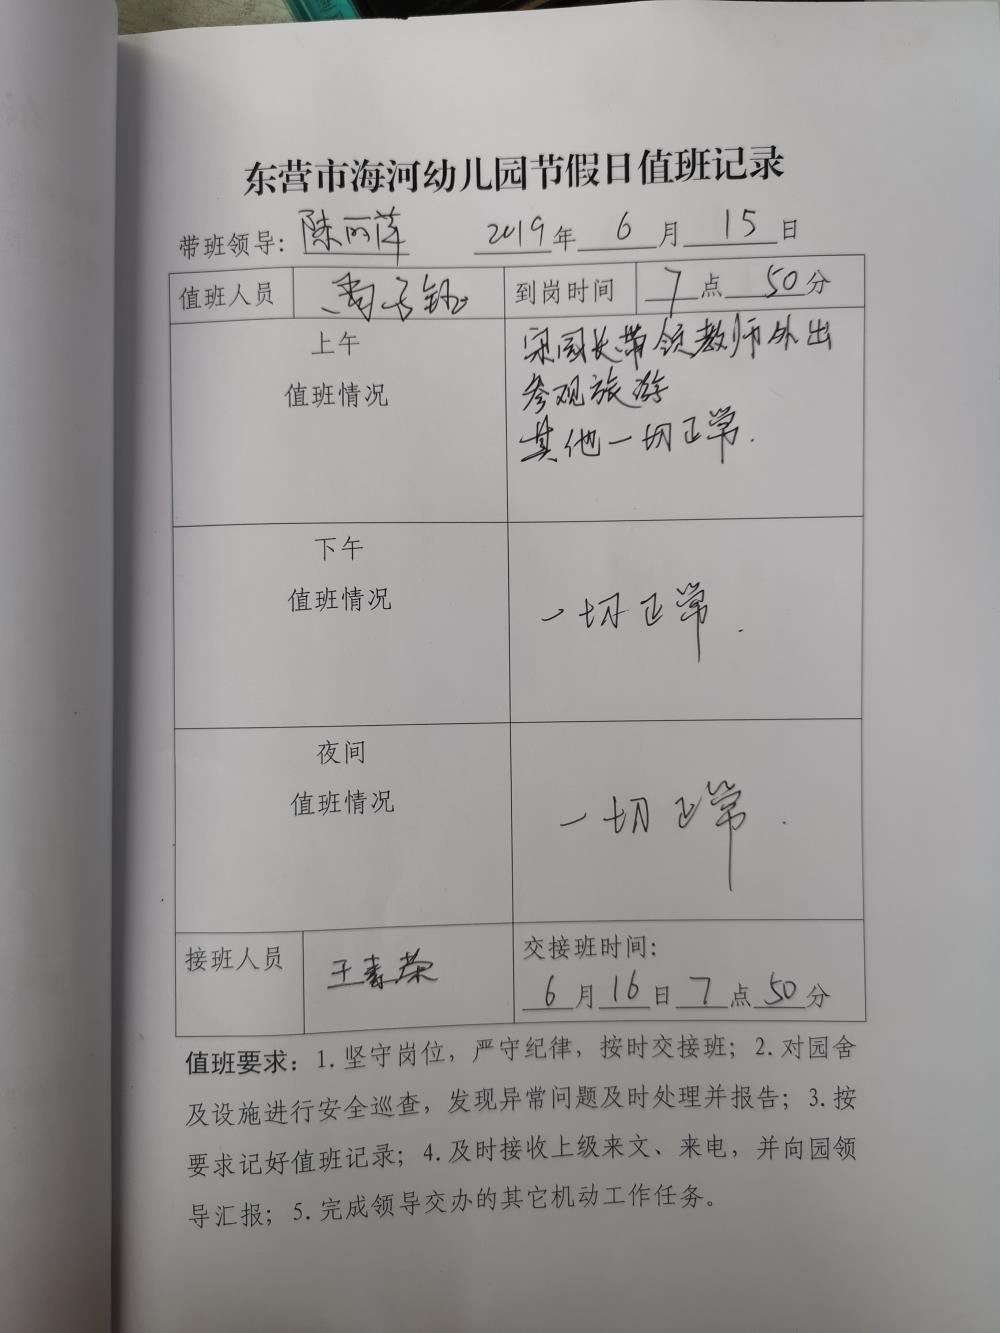 东营市海河幼儿园节假日值班记录
带班领导: 陈丽萍 2019年 6 月 15 日
值班人员 到岗时间 7 点 50 分
上午
值班情况
宋园长带领教师外出
参观旅游
其他一切正常.
下午
值班情况
一切正常.
夜间
值班情况
一切正常.
接班人员 王素荣
交接班时间:
6 月 16 日 7 点 50 分
值班要求: 1. 坚守岗位，严守纪律，按时交接班；2. 对园舍
及设施进行安全巡查，发现异常问题及时处理并报告；3. 按
要求记好值班记录；4. 及时接收上级来文、来电，并向园领
导汇报；5. 完成领导交办的其它机动工作任务。